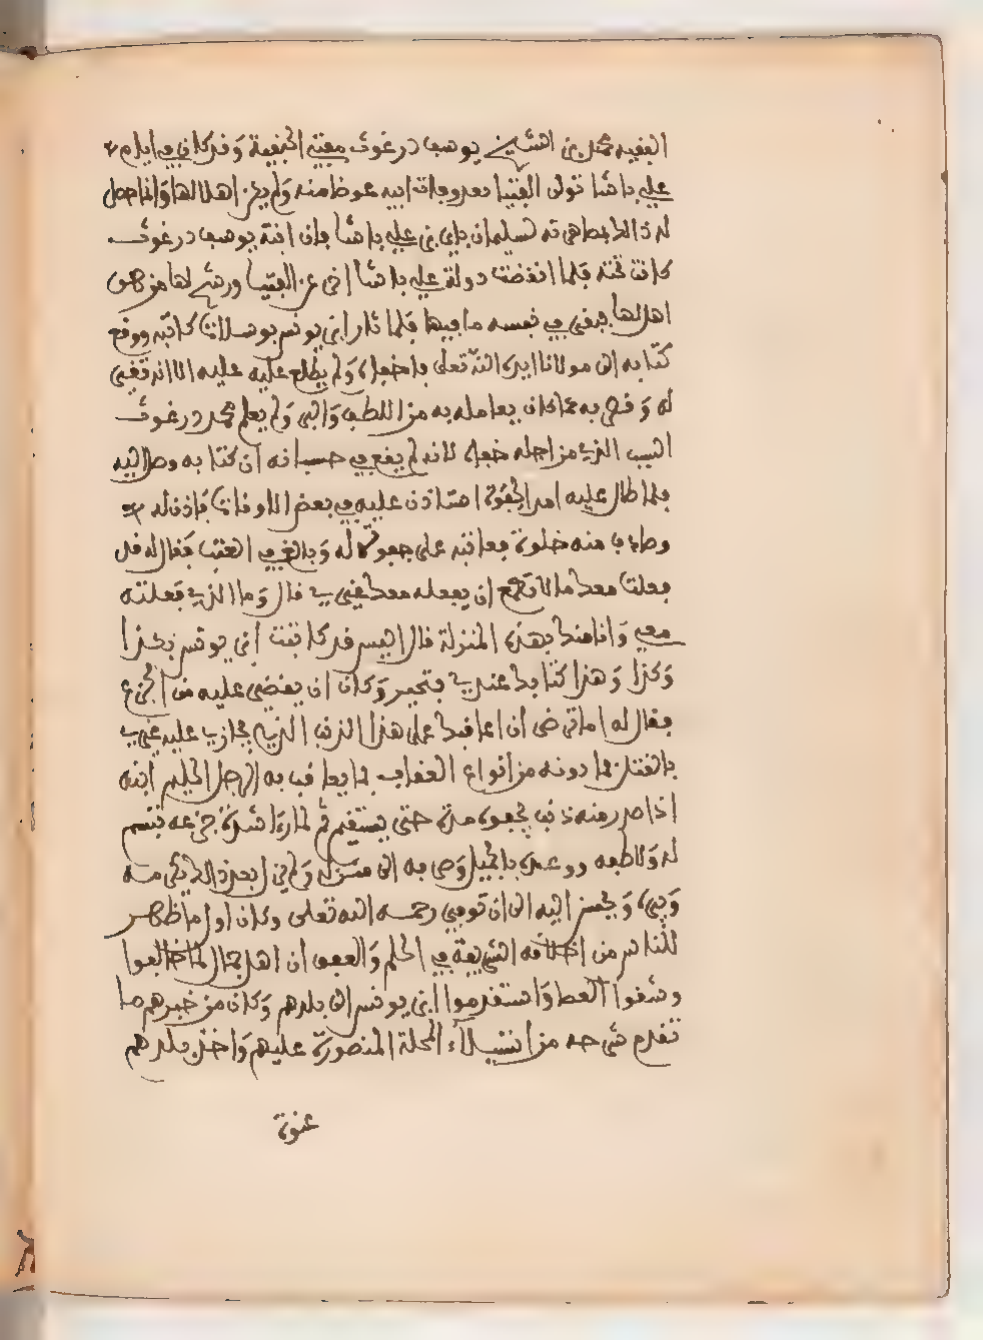 الفقيه محمد بن الشيخ يوسف درغوث مفتي الحنفية وقد كان في ايام
علي باشا تولى الفتيا بعد وفات ابيه عوضا منه ولم يكن اهلا لها وانما حصل
له ذالك بمصاهرته لسليمان باي بن علي باشا فان ابنة يوسف درغوث
كانت تحته فلما انقضت دولة علي باشا اخر عن الفتيا ورشح لها من هو
اهل لها فبقي في نفسه ما فيها فلما ثار ابن يونس بوسلات كاتبه ووقع
كتابه الى مولانا ايده الله تعالى فاخفاه ولم يطلع عليه عليه الا انه تغير
له وقصر به عما كان يعامله به من اللطف والبر ولم يعلم محمد درغوث
السبب الذي من اجله جفاه لانه لم يقع في حسبانه ان كتابه وصل اليه
فلما طال عليه امد الجفوة استاذن عليه في بعض الاوقات فاذن له
وصادف منه خلوة فعاتبه على جفوته له وبالغ في العتب فقال له قد
فعلت معك ما لا يفعله معك غيري قال وما الذي فعلته
معي وانا منك بهذه المنزلة قال اليس قد كاتبت ابن يونس بكذا
وكذا وهذا كتابك عندي فتحير وكاد ان يغشى عليه من الجزع
فقال له اما ترضى ان اعاقبك على هذا الذنب الذي يجازي عليه غيري
بالقتل فما دونه من انواع العقاب بما يعاقب به الرجل الحليم ابنه
اذا صدر منه ذنب يجفوه مدة حتى يستقيم ثم لما رءا شدة جزعه تبسم
له ولاطفه ووعده بالجميل وصرفه الى منزله ولم يزل بعد ذالك يكرمه
ويبره ويحسن اليه الى ان توفي رحمه الله تعالى وكان اول ما ظهر
للناس من اخلاقه الشريفة في الحلم والعفو ان اهل جمال لما خالفوا
وشقوا العصا واستقدموا ابن يونس الى بلدهم وكان من خبرهم ما
تقدم شرحه من استيلاء المحلة المنصورة عليهم واخذ بلدهم
عنوة